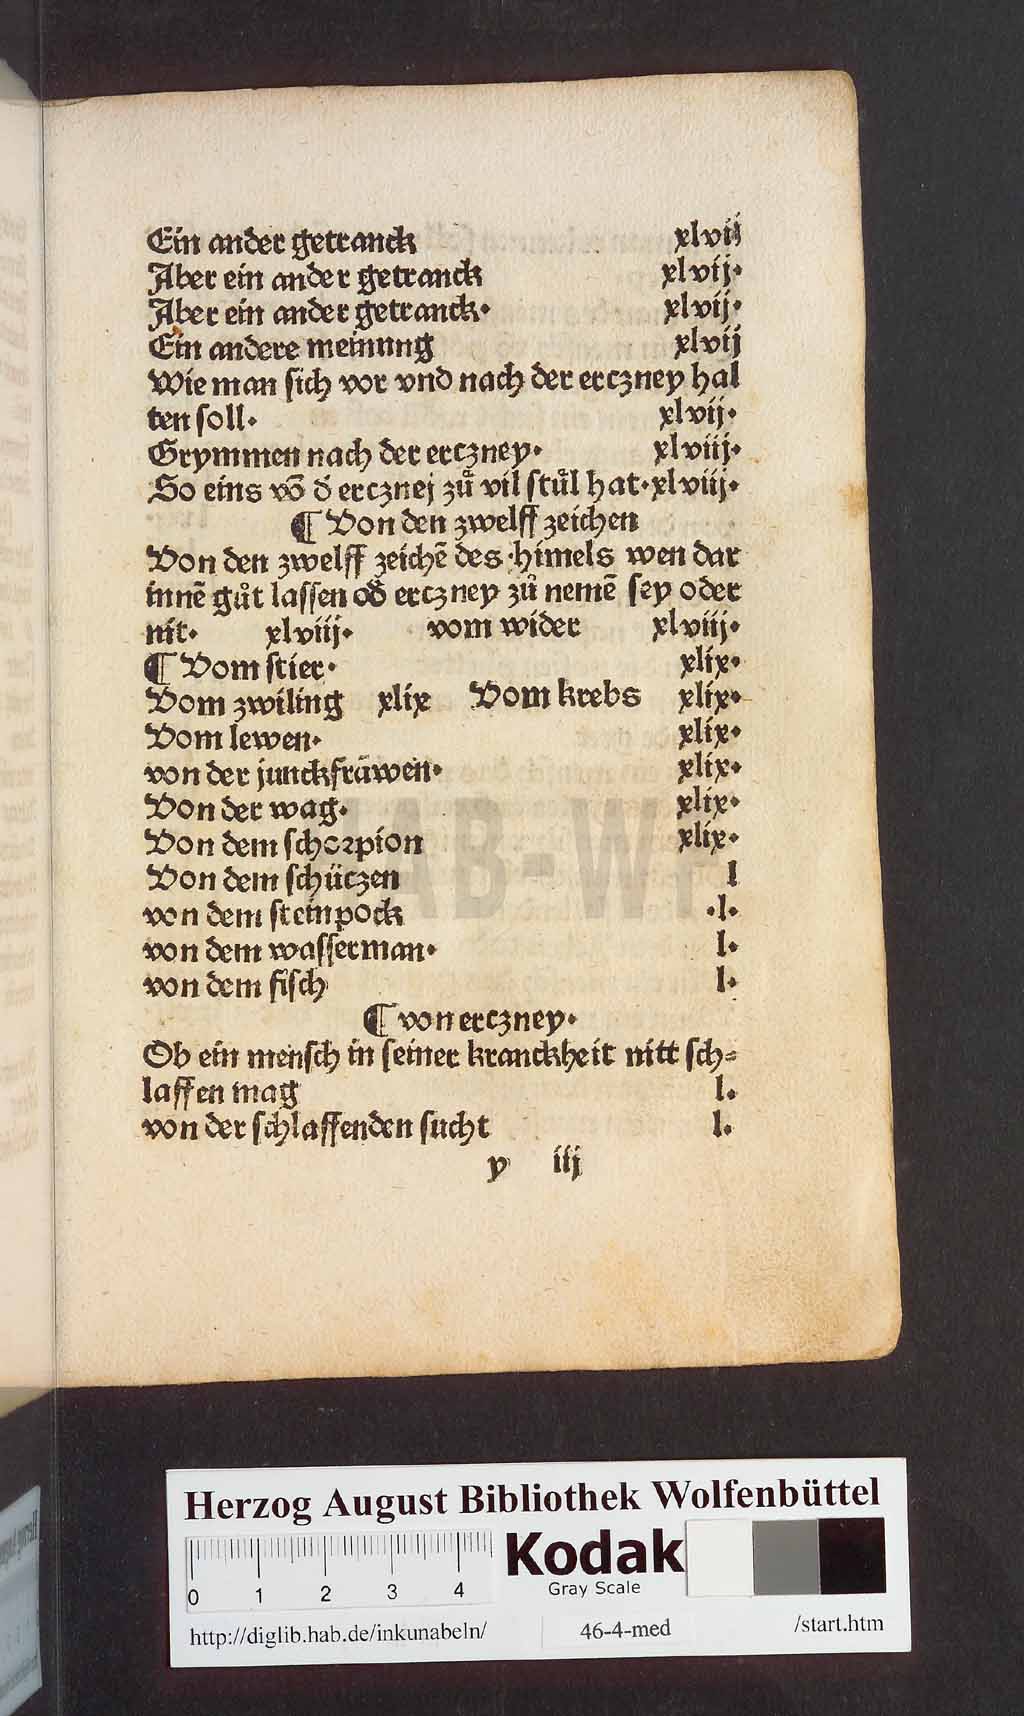 Ein ander getranck xlvij
Aber ein ander getranck xlvij·
Aber ein ander getranck· xlvij·
Ein andere meinung xlvij
Wie man sich vor vnd nach der erczney hal
ten soll· xlvij·
Grymmen nach der erczney· xlviij·
So eins võ d̕ ercznej zů vil stůl hat· xlviij·
¶ Von den zwelff zeichen
Von den zwelff zeichẽ des ·himels wen dar
innẽ gůt lassen od̕ erczney zů nemẽ sey oder
nit· xlviij· vom wider xlviij·
¶ Vom stier· xlix·
Vom zwiling xlix Vom krebs xlix·
Vom lewen· xlix·
von der junckfräwen· xlix·
Von der wag· xlix·
Von dem schorpion xlix·
Von dem schüczen l
von dem steinpock ·l·
von dem wasserman· l·
von dem fisch l·
¶ von erczney·
Ob ein mensch in seiner kranckheit nitt sch=
laffen mag l.
von der schlaffenden sucht l.
y iij
HAB-W
Herzog August Bibliothek Wolfenbüttel
0 1 2 3 4
Kodak
Gray Scale
http://diglib.hab.de/inkunabeln/ 46-4-med /start.htm